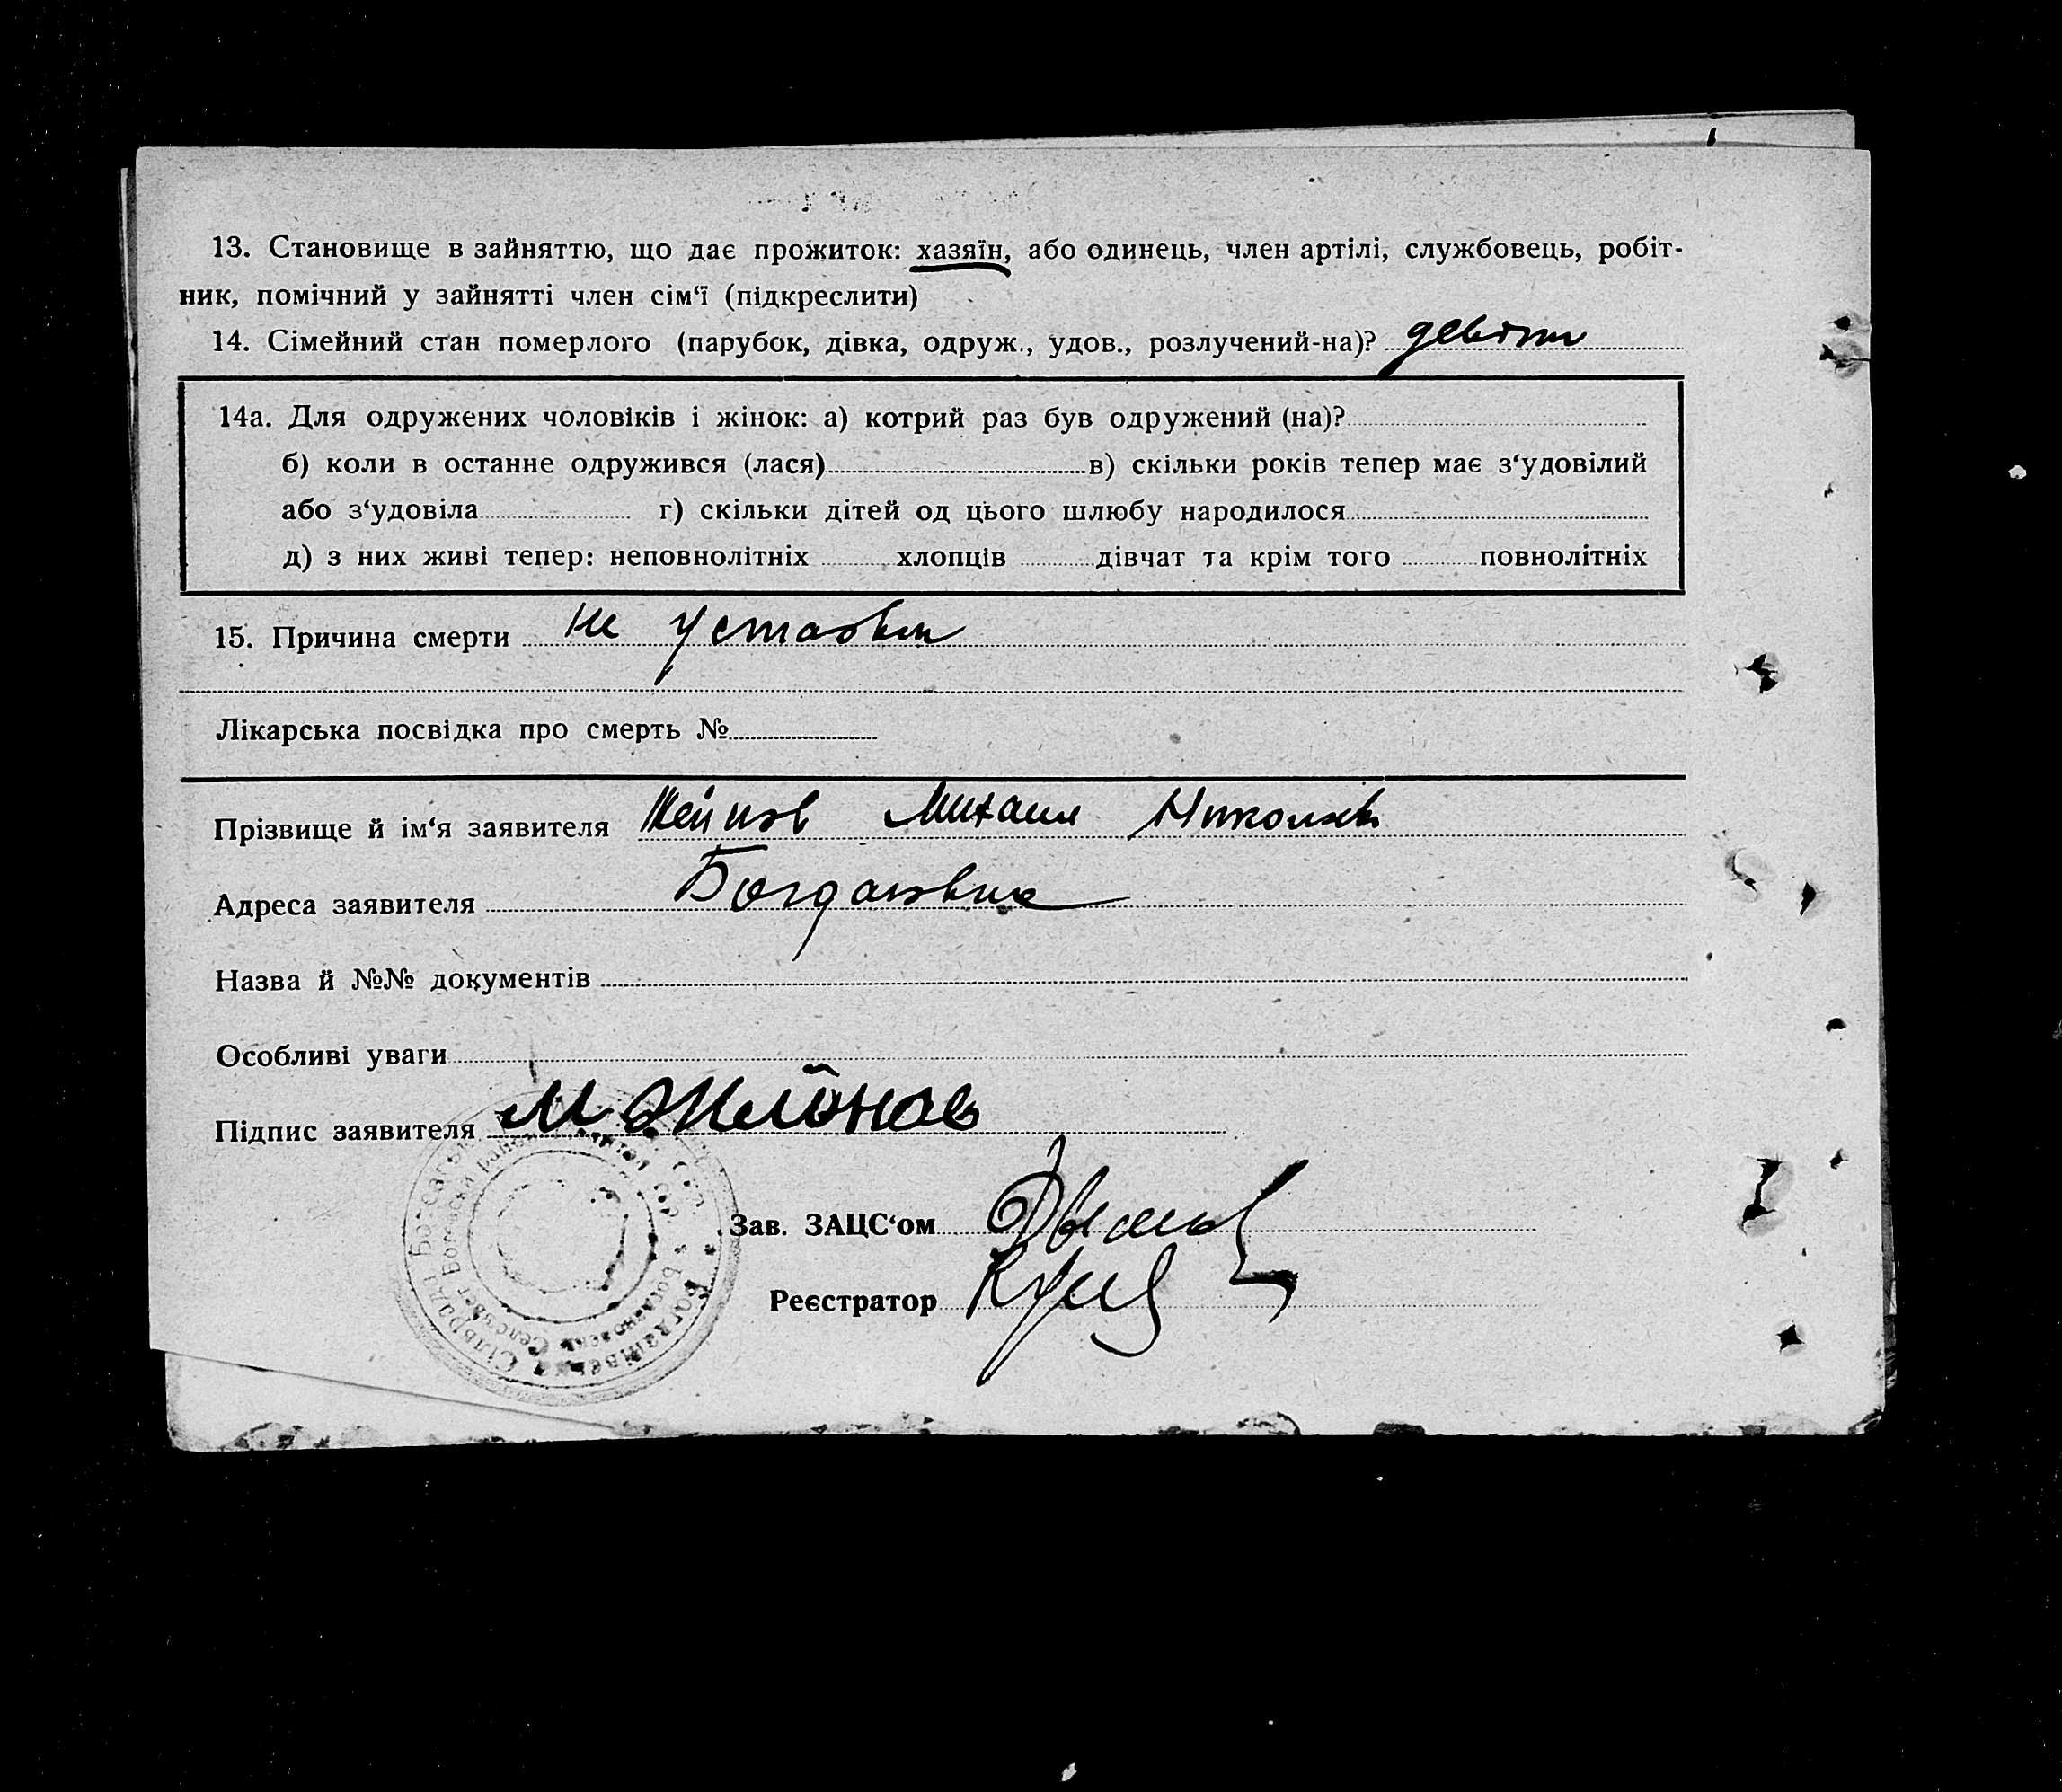 13. Становище в зайняттю, що дає прожиток: хазяїн, або одинець, член артілі, службовець, робіт-
ник, помічний у зайнятті член сім‘ї (підкреслити)
14. Сімейний стан померлого (парубок, дівка, одруж., удов., розлучений-на)?
14а. Для одружених чоловіків і жінок: а) котрий раз був одружений (на)?
б) коли в останне одружився (лася) в) скільки років тепер має з‘удовілий
або з‘удовіла г) скільки дітей од цього шлюбу народилося
д) з них живі тепер: неповнолітніх хлопців дівчат та крім того повнолітніх
15. Причина смерти не
Лікарська посвідка про смерть №
Прізвище й ім‘я заявителя Михаил
Адреса заявителя
Назва й №№ документів
Особливі уваги
Підпис заявителя М
Зав. ЗАЦС‘ом
Реєстратор